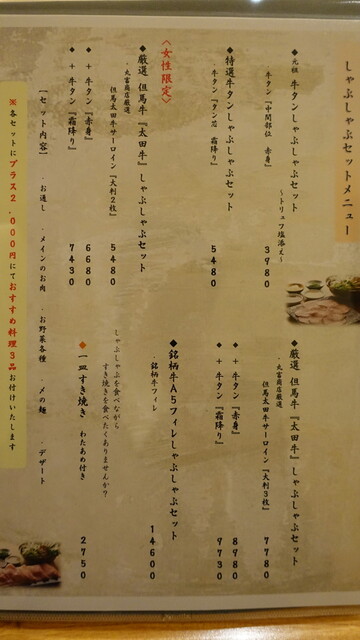 しゃぶしゃぶセットメニュー
◆元祖 牛タンしゃぶしゃぶセット
～トリュフ塩添え～
・牛タン『中間部位 赤身』 3980
◆特選牛タンしゃぶしゃぶセット
・牛タン『タン芯 霜降り』 5480
〈女性限定〉
◆厳選 但馬牛『太田牛』しゃぶしゃぶセット
・丸富商店厳選
但馬太田牛サーロイン『大判2枚』 5480
◆+牛タン『赤身』 6680
◆+牛タン『霜降り』 7430
◆厳選 但馬牛『太田牛』しゃぶしゃぶセット
・丸富商店厳選
但馬太田牛サーロイン『大判3枚』 7780
◆+牛タン『赤身』 8980
◆+牛タン『霜降り』 9730
◆銘柄牛A5フィレしゃぶしゃぶセット
・銘柄牛フィレ 14600
しゃぶしゃぶを食べながら
すき焼きを食べたくありませんか?
◆一皿すき焼き わたあめ付き 2750
【セット内容】 ・お通し ・メインのお肉 ・お野菜各種 ・〆の麺 ・デザート
※各セットにプラス2,000円にておすすめ料理3品お付けいたします